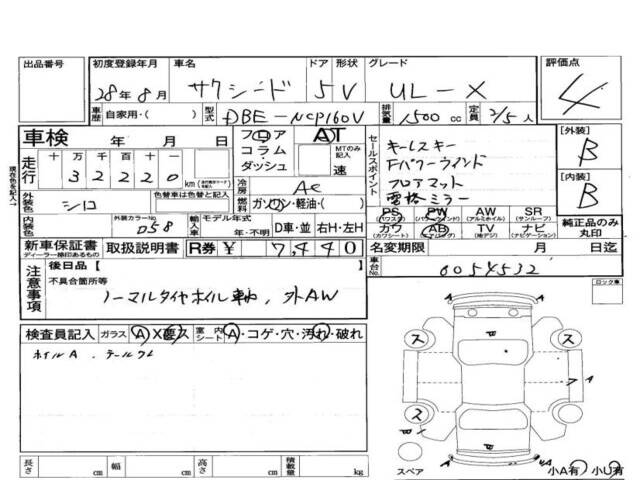 出品番号
初度登録年月 車名 ドア 形状 グレード 評価点
28年8月 サクシード 5 V UL-X 4
車歴 自家用・( ) 型式 DBE-NCP160V 排気量 1500 cc 定員 2/5人
車検 年 月 日
フロア AT
コラム・ダッシュ MTのみ記入 速
走行 十万千百十一
32220 km
冷房 AC
燃料 ガソリン・軽油・( )
外装色 シロ 色替車は色替と記入
内装色 外装カラーNo. 058
輸入車 モデル年式 年・不明 D車・並 右H・左H
セールスポイント
キーレスキー
Fパワーウインド
フロアマット
電格ミラー
[外装] B
[内装] B
PS(パワステ) PW(パワーウインド) AW(アルミホイル) SR(サンルーフ)
カワ(カワシート) AB(エアバッグ) TV(地デジ) ナビ(ナビゲーション)
純正品のみ丸印
新車保証書 ディーラー捺印あるもの 取扱説明書 R券 ¥ 7,440
名変期限 月 日迄
車台No. 0054532
注意事項
後日品【 】
不具合箇所等
ノーマルタイヤホイル車載、外AW
ロック車
検査員記入 ガラス A X要ス 室内シート A・コゲ・穴・汚れ・破れ
ホイルA、テールワレ
ス ス
ス ス
A
スペア
小A有 小U有
長さ cm 幅 cm 高さ cm 積載量 kg